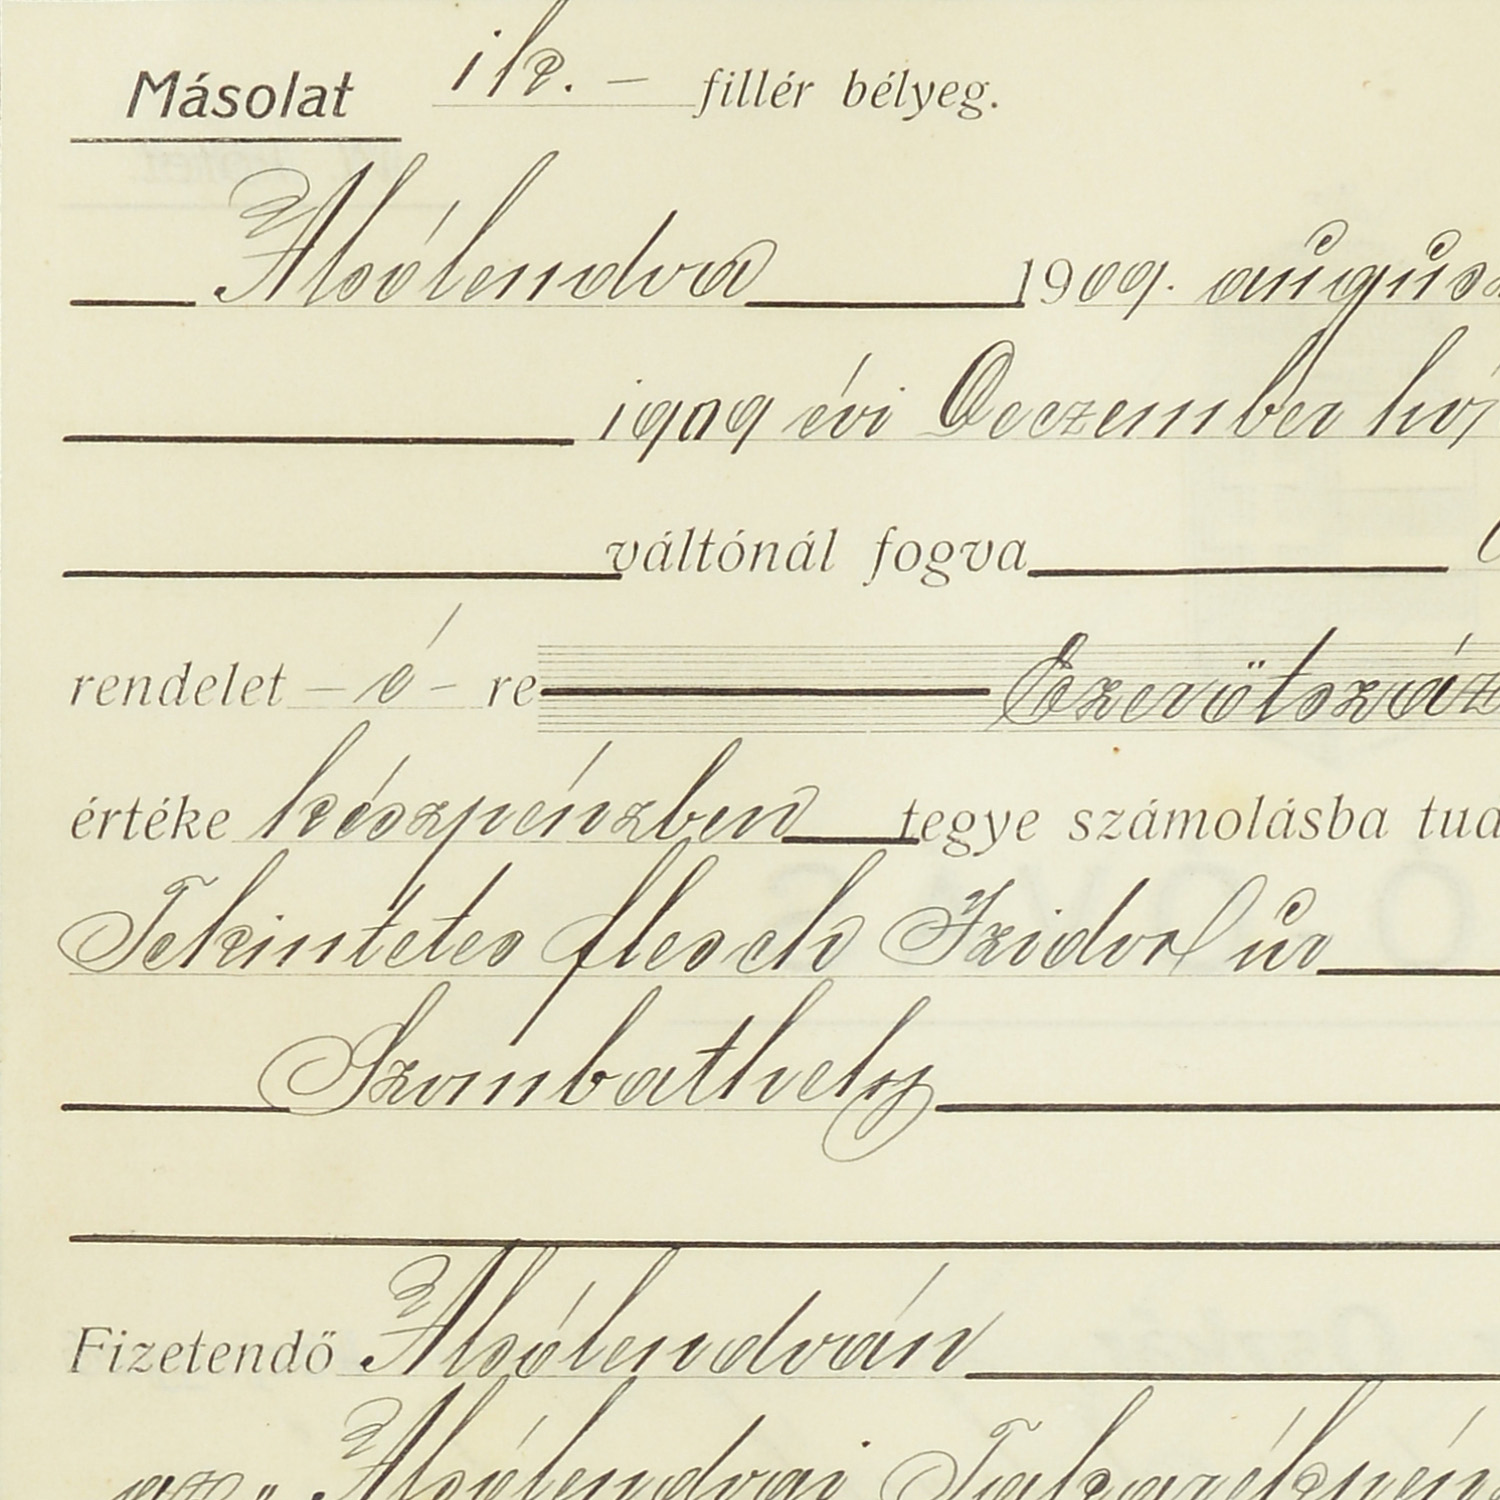 Másolat 1 k. – fillér bélyeg.
Alsólendva 1909. augusz
1909 évi Deczember hó
váltónál fogva
rendelet – ó – re Ezerötszáz
értéke készpénzben tegye számolásba tud
Tekintetes flesch Izidor úr
Szombathely
Fizetendő Alsólendván
az „Alsólendvai Takarékpén